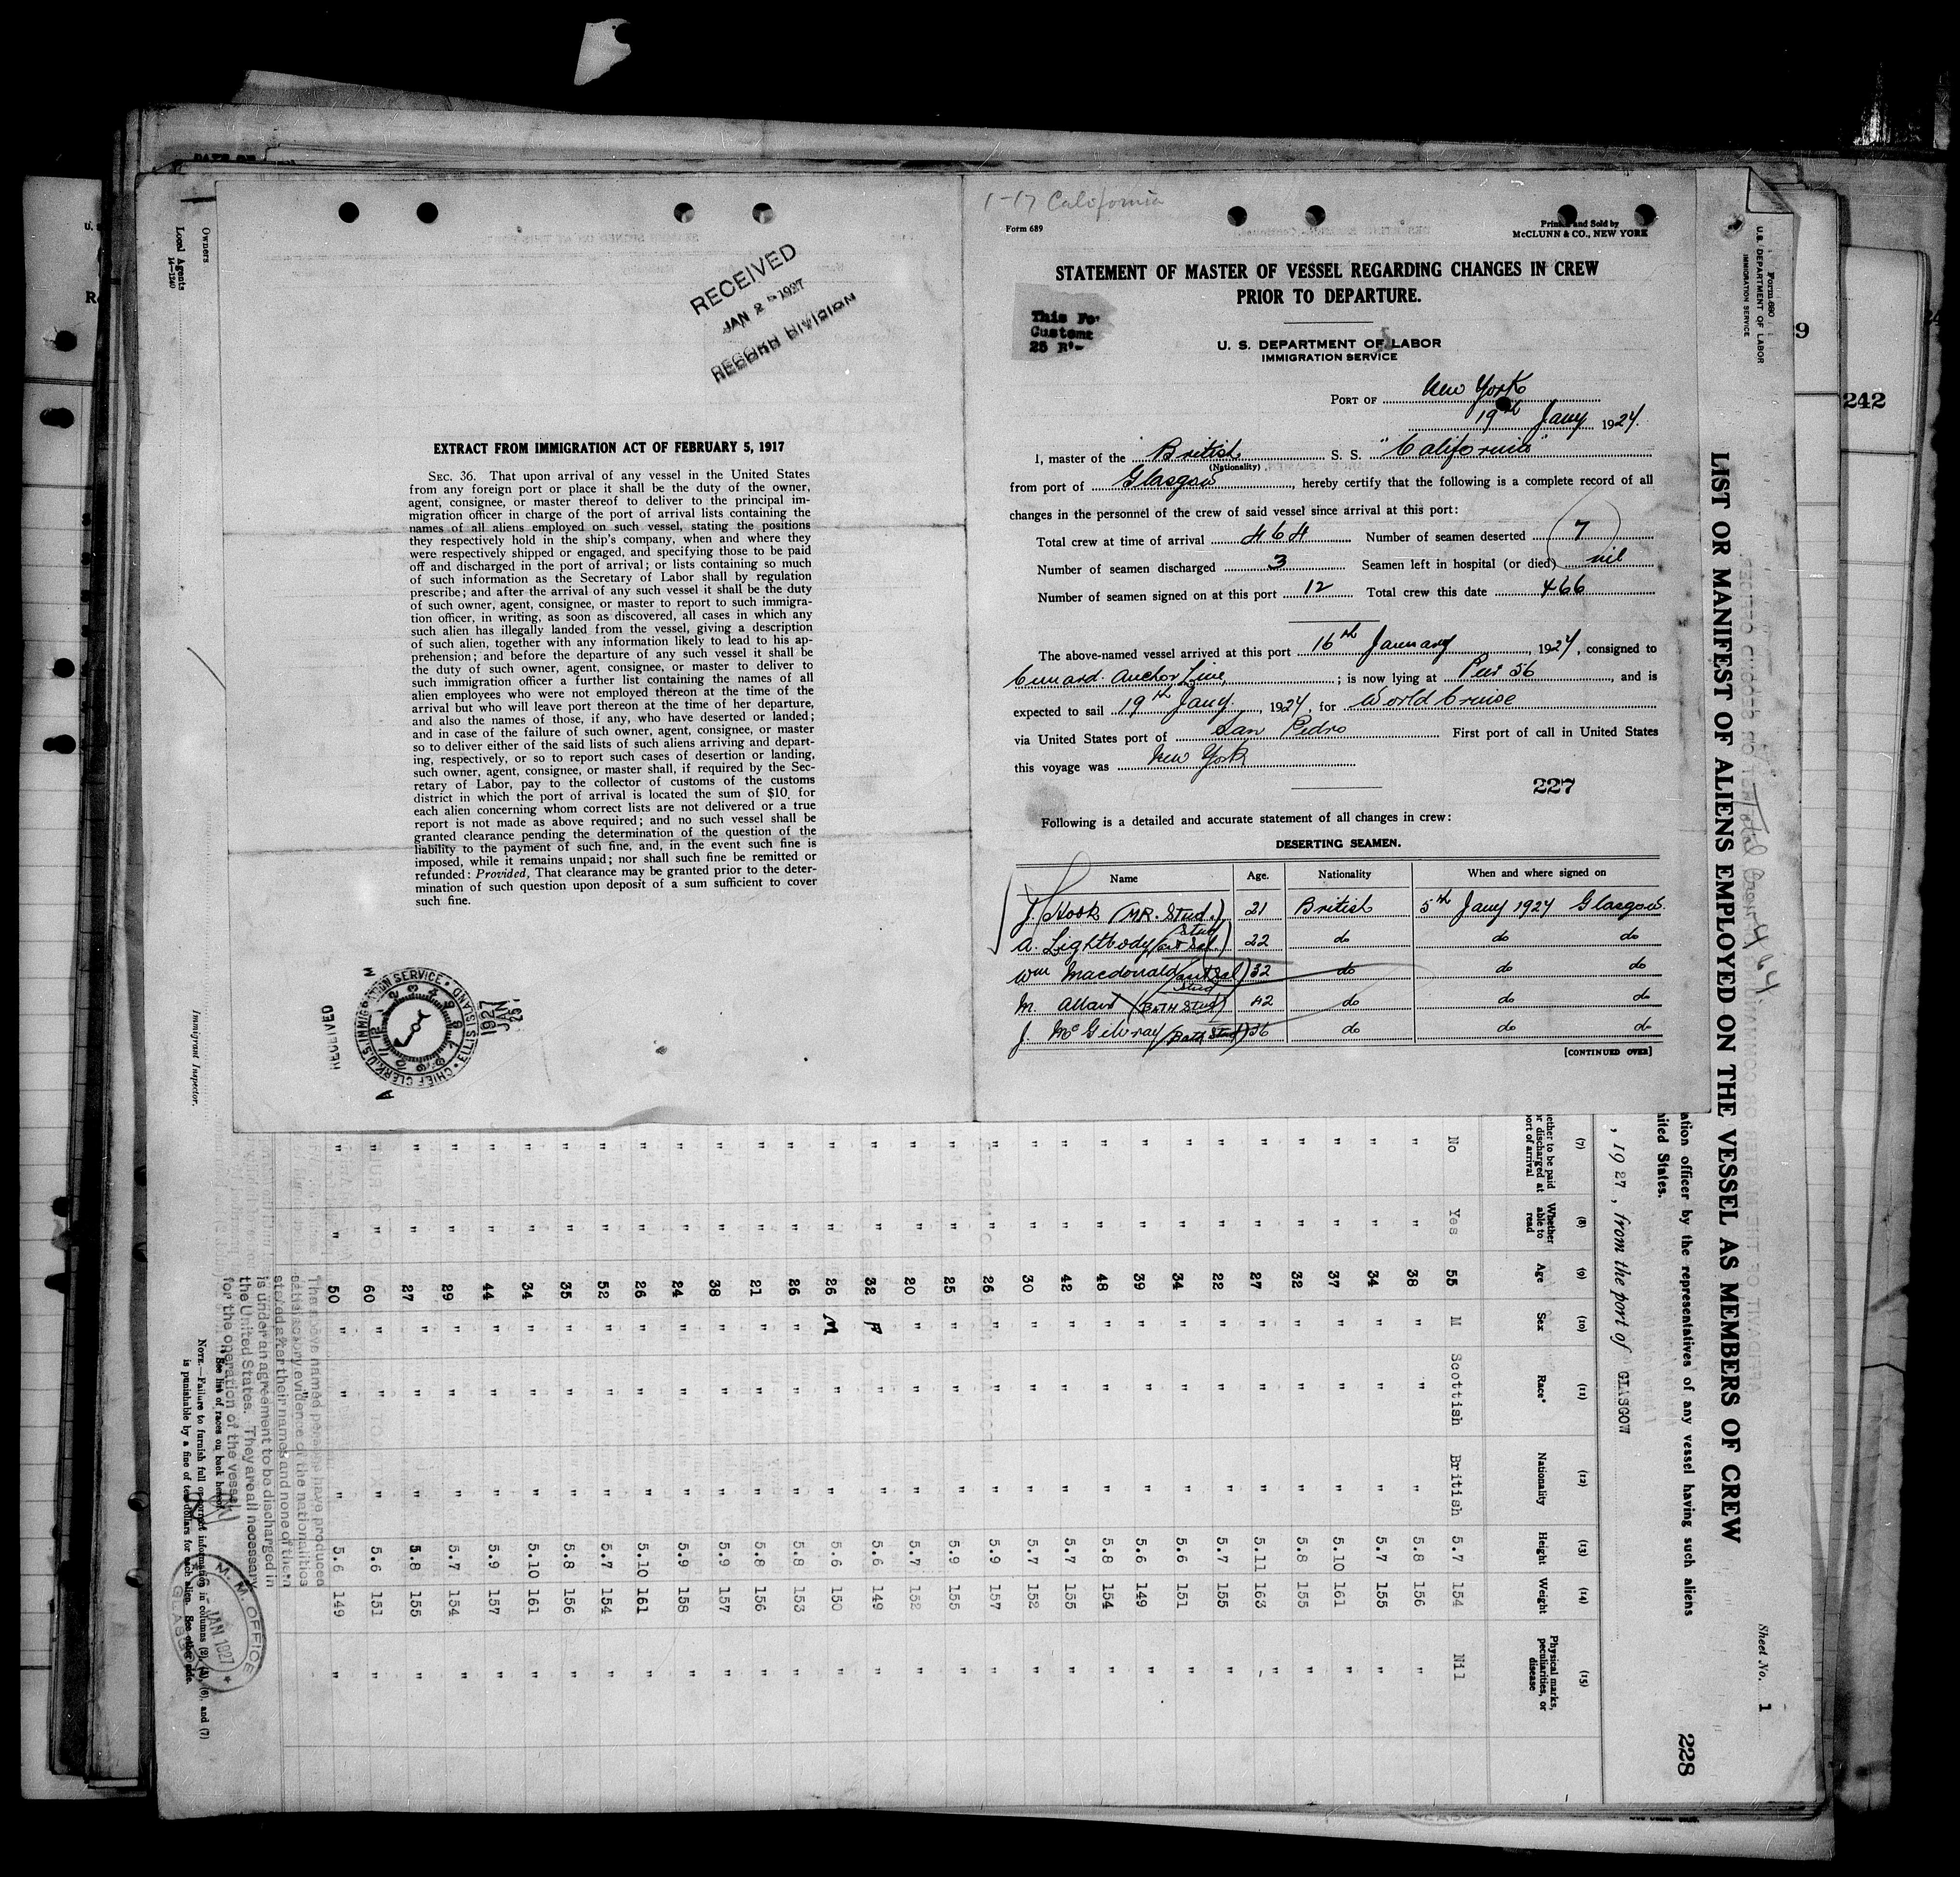 1-17 California
Form 689
Printed and Sold by
McCLUNN & CO., NEW YORK
STATEMENT OF MASTER OF VESSEL REGARDING CHANGES IN CREW
PRIOR TO DEPARTURE.
This Fo
Customs
25 B
U. S. DEPARTMENT OF LABOR
IMMIGRATION SERVICE
PORT OF New York
19th Jany 1924.
I, master of the British S. S. "California"
(Nationality)
from port of Glasgow, hereby certify that the following is a complete record of all
changes in the personnel of the crew of said vessel since arrival at this port:
Total crew at time of arrival 464 Number of seamen deserted 7
Number of seamen discharged 3 Seamen left in hospital (or died) nil
Number of seamen signed on at this port 12 Total crew this date 466
The above-named vessel arrived at this port 16th January, 1924, consigned to
Cunard. Anchor Line, ; is now lying at Pier 56, and is
expected to sail 19th Jany., 1924, for World Cruise
via United States port of San Pedro First port of call in United States
this voyage was New York
227
Following is a detailed and accurate statement of all changes in crew:
DESERTING SEAMEN.
Name Age. Nationality When and where signed on
J. Hook 21 British 5th Jany 1924 Glasgow.
A. Lightbody 22 do do do
Wm Macdonald 32 do do do
M. 42 do do do
J. McGilvray 36 do do do
[CONTINUED OVER]
RECEIVED
JAN 25 1927
RECORD DIVISION
EXTRACT FROM IMMIGRATION ACT OF FEBRUARY 5, 1917
SEC. 36. That upon arrival of any vessel in the United States
from any foreign port or place it shall be the duty of the owner,
agent, consignee, or master thereof to deliver to the principal im-
migration officer in charge of the port of arrival lists containing the
names of all aliens employed on such vessel, stating the positions
they respectively hold in the ship's company, when and where they
were respectively shipped or engaged, and specifying those to be paid
off and discharged in the port of arrival; or lists containing so much
of such information as the Secretary of Labor shall by regulation
prescribe; and after the arrival of any such vessel it shall be the duty
of such owner, agent, consignee, or master to report to such immigra-
tion officer, in writing, as soon as discovered, all cases in which any
such alien has illegally landed from the vessel, giving a description
of such alien, together with any information likely to lead to his ap-
prehension; and before the departure of any such vessel it shall be
the duty of such owner, agent, consignee, or master to deliver to
such immigration officer a further list containing the names of all
alien employees who were not employed thereon at the time of the
arrival but who will leave port thereon at the time of her departure,
and also the names of those, if any, who have deserted or landed;
and in case of the failure of such owner, agent, consignee, or master
so to deliver either of the said lists of such aliens arriving and depart-
ing, respectively, or so to report such cases of desertion or landing,
such owner, agent, consignee, or master shall, if required by the Sec-
retary of Labor, pay to the collector of customs of the customs
district in which the port of arrival is located the sum of $10 for
each alien concerning whom correct lists are not delivered or a true
report is not made as above required; and no such vessel shall be
granted clearance pending the determination of the question of the
liability to the payment of such fine, and, in the event such fine is
imposed, while it remains unpaid; nor shall such fine be remitted or
refunded: Provided, That clearance may be granted prior to the deter-
mination of such question upon deposit of a sum sufficient to cover
such fine.
RECEIVED
1927 JAN 25
U.S. IMMIGRATION SERVICE
CHIEF CLERK
ELLIS ISLAND
Owners
Local Agents
14-1240
Immigrant Inspector.
Form 680
U. S. DEPARTMENT OF LABOR
IMMIGRATION SERVICE
Sheet No. 1
228
242
LIST OR MANIFEST OF ALIENS EMPLOYED ON THE VESSEL AS MEMBERS OF CREW
ation officer by the representatives of any vessel having such aliens
nited States.
, 1927, from the port of GLASGOW
Total Crew 464.
(7) (8) (9) (10) (11) (12) (13) (14) (15)
ether to be paid or discharged at port of arrival
Whether able to read
Age
Sex
Race*
Nationality
Height
Weight
Physical marks, peculiarities, or disease
No Yes 55 M Scottish British 5.7 154 Nil
" " 38 " " " 5.8 156 "
" " 34 " " " 5.7 155 "
" " 37 " " " 5.10 161 "
" " 32 " " " 5.8 155 "
" " 27 " " " 5.11 163 "
" " 22 " " " 5.7 155 "
" " 34 " " " 5.6 151 "
" " 39 " " " 5.6 149 "
" " 48 " " " 5.8 154 "
" " 42 " " " 5.7 155 "
" " 30 " " " 5.7 152 "
" " 26 " " " 5.9 157 "
" " 25 " " " 5.9 155 "
" " 20 " " " 5.7 152 "
" " 32 F " " 5.6 149 "
" " 26 M " " 5.6 150 "
" " 26 " " " 5.8 153 "
" " 21 " " " 5.8 156 "
" " 38 " " " 5.9 157 "
" " 24 " " " 5.9 158 "
" " 26 " " " 5.10 161 "
" " 52 " " " 5.7 154 "
" " 35 " " " 5.8 156 "
" " 34 " " " 5.10 161 "
" " 44 " " " 5.9 157 "
" " 29 " " " 5.7 154 "
" " 27 " " " 5.8 155 "
" " 60 " " " 5.6 151 "
" " 50 " " " 5.6 149 "
The above named persons have produced
satisfactory evidence of the nationalities
stated after their names and none of them
is under an agreement to be discharged in
the United States. They are all necessary
for the operation of the vessel.
* See list of races on back hereof.
NOTE.—Failure to furnish full or correct information in columns (2), (3), (6), and (7)
is punishable by a fine of ten dollars for each alien. See other side.
M. M. OFFICE
JAN 1927
GLASGOW